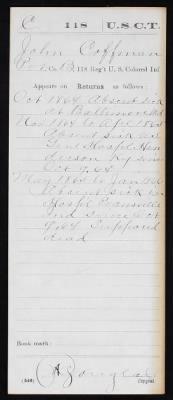 C 118 U.S.C.T.
John Coffman
Pvt. Co. B, 118 Reg't U. S. Colored Inf
Appears on Returns as follows:
Oct 1864 Absent sick
at Baltimore Md
Nov 1864 to Apl 1865
Absent sick in
Genl Hospl Hen
derson Ky since
Oct 9, 64
May 1865 to Jan 1866
Absent sick in
Hospl Evansville
Ind since Oct
9, 64 Supposed
dead
Book mark:
(546) Copyist.